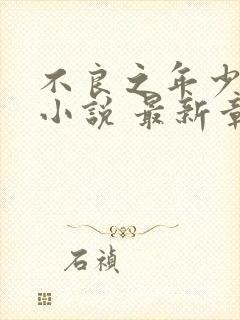 不良之年少
小说 最新章
石祯